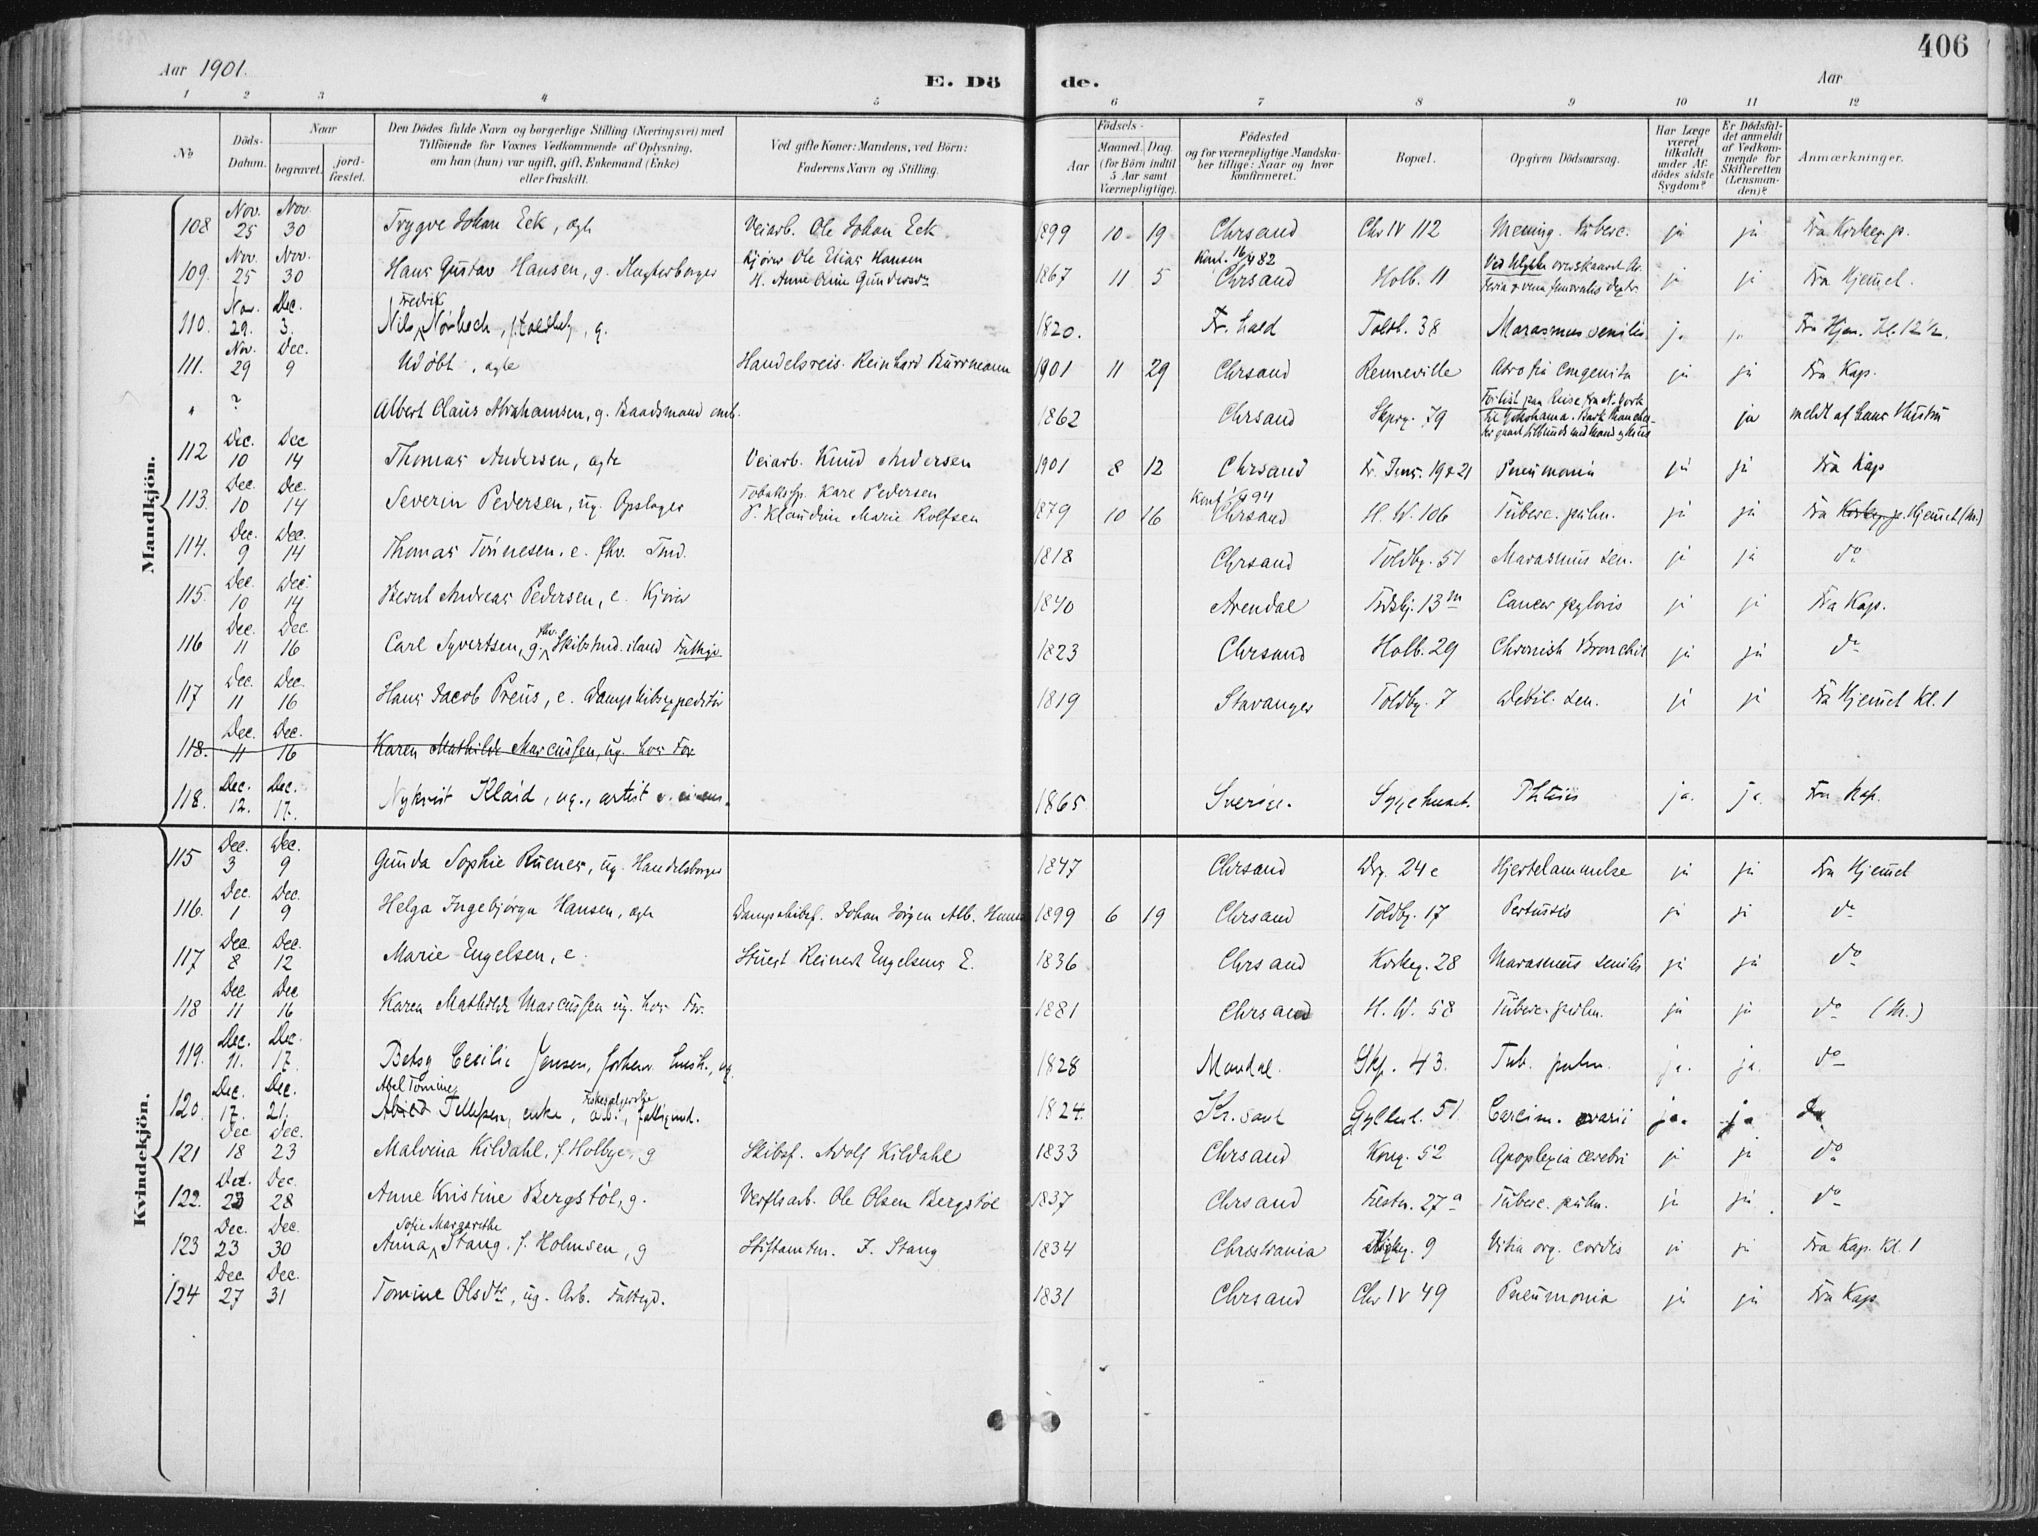 406
Aar 1901.
E. Dö de.
Aar
1 2 3 4 5 6 7 8 9 10 11 12
No
Döds-Datum.
Naar
begravet.
jord-fæstet.
Den Dödes fulde Navn og borgerlige Stilling (Næringsvei) med
Tilföiende for Voxnes Vedkommende af Oplysning,
om han (hun) var ugift, gift, Enkemand (Enke)
eller fraskilt.
Ved gifte Koner: Mandens, ved Börn:
Faderens Navn og Stilling.
Födsels-
Aar
Maaned. Dag.
(for Börn indtil
5 Aar samt
Værnepligtige).
Födested
og for værnepligtige Mandska-
ber tillige: Naar og hvor
konfirmeret.
Bopæl.
Opgiven Dödsaarsag.
Har Læge
været
tilkaldt
under Af-
dödes sidste
Sygdom?
Er Dödsfal-
det anmeldt
af Vedkom-
mende for
Skifteretten
(Lensman-
den)?
Anmærkninger.
Mandkjön.
108 Nov. 25 Nov. 30 Trygve Johan Eek, ægte Veiarb. Ole Johan Eek 1899 10 19 Chrsand Chr IV 112 Mening. tuberc. ja ja Fra Kirkeg. p.
109. Nov. 25 Nov. 30 Hans Gustav Hansen, g. Kjörer Ole Elias Hansen 1867 11 5 Konf. 82 Chrsand Holb. 11 ja ja Fra Hjemmet.
110. Nov. 29. Dec. 3. Nils Fredrik Nörbech, g. 1820. Fr. hald Toldb. 38 Marasmus senilis ja ja Fra Hjem. Kl. 12 1/2.
111. Nov. 29 Dec. 9 Udöbt, ægte Handelsreis. Reinhard Burrmann 1901 11 29 Chrsand Renneville Atrofia congenita ja ja Fra Kap.
" ? Albert Claus Abrahamsen, g. Baadsmand 1862 Chrsand Skipg. 79 Forlist paa Reise fra N. York til Yokohama. Bark ja meldt af hans Hustru
112 Dec. 10 Dec 14 Thomas Andersen, ægte Veiarb. Knud Andersen 1901 8 12 Chrsand Fr. Tens. 19 & 21 Pneumonia ja ja Fra Kap
113. Dec. 10 Dec. 14 Severin Pedersen, ug. Opslager Karl Pedersen & Klaudine Marie Rolfsen 1879 10 16 Konf. 94 Chrsand H. W. 106 Tuberc. pulm. ja ja Fra Hjemmet (M.)
114. Dec. 9 Dec. 14 Thomas Tönnesen, e. fhv. Tmd. 1818 Chrsand Toldbg. 51 Marasmus sen. ja ja do
115. Dec. 10 Dec. 14 Bernt Andreas Pedersen, e. Kjörer 1840 Arendal 13 m Cancer pylovis ja ja Fra Kap.
116 Dec. 11 Dec. 16 Carl Syvertsen, g. fhv. Skibstmd. iland Fattigv. 1823 Chrsand Holb. 29 Chronisk Bronchit ja ja do
117 Dec. 11 Dec. 16 Hans Jacob Preus, e. Dampskibsexpeditör 1819 Stavanger Toldbg. 7 Debil. sen. ja ja Fra Hjemmet Kl. 1
118. Dec. 11 Dec. 16 Karen Mathilde Marcussen, ug. hos For
118. Dec. 12. Dec. 17. Nykvist Klaid, ug., artist 1865 Sverige. Sygehuset. Phtisis ja. ja. Fra Kap.
Kvindekjön.
115 Dec. 3 Dec. 9 Gunda Sophie Ruenes, ug. Handelsborger 1847 Chrsand Drg. 24 c Hjertelammelse ja ja Fra Hjemmet
116. Dec. 1 Dec. 9 Helga Ingebjörg Hansen, ægte Dampskibsf. Johan Jörgen Alb. Hansen 1899 6 19 Chrsand Toldbg. 17 Pertussis ja ja do
117 Dec. 8 Dec. 12 Marie Engelsen, e. Stuert Reinert Engelsens E. 1836 Chrsand Kirkeg. 28 Marasmus senilis ja ja do
118 Dec. 11 Dec 16 Karen Mathilde Marcussen ug. hos For. 1881 Chrsand H. W. 58 Tuberc. pulm. ja ja do (M.)
119. Dec. 11. Dec. 17. Betsy Cecilie Jensen, ug. 1828 Mandal. Skp. 43. Tub. pulm. ja. ja. do
120. Dec. 17. Dec. 21. Abel Tomine Tellefsen, enke, fattigund. 1824. Kr.sand Gyldenl. 51. Carcim. ovarii ja. ja do
121 Dec 18 Dec. 23 Malvina Kildahl, f. Holbye, g Skibsf. Adolf Kildahl 1833 Chrsand Kong. 52 Apoplexia cerebri ja ja do
122. Dec. 23 Dec. 28 Anne Kristine Bergstöl, g. Verftsarb. Ole Olsen Bergstöl 1837 Chrsand Festn. 27 a Tuberc. pulm. ja ja do
123 Dec. 23 Dec. 30 Anna Sofie Margarethe Stang. f. Holmsen, g Stiftamtm. F. Stang 1834 Christiania Kirkeg. 9 Vitia org. cordis ja ja Fra Kap. Kl. 1
124 Dec. 27 Dec. 31 Tomine Olsdtr, ug. Arb. Fattigv. 1831 Chrsand Chr IV 49 Pneumonia ja ja Fra Kap